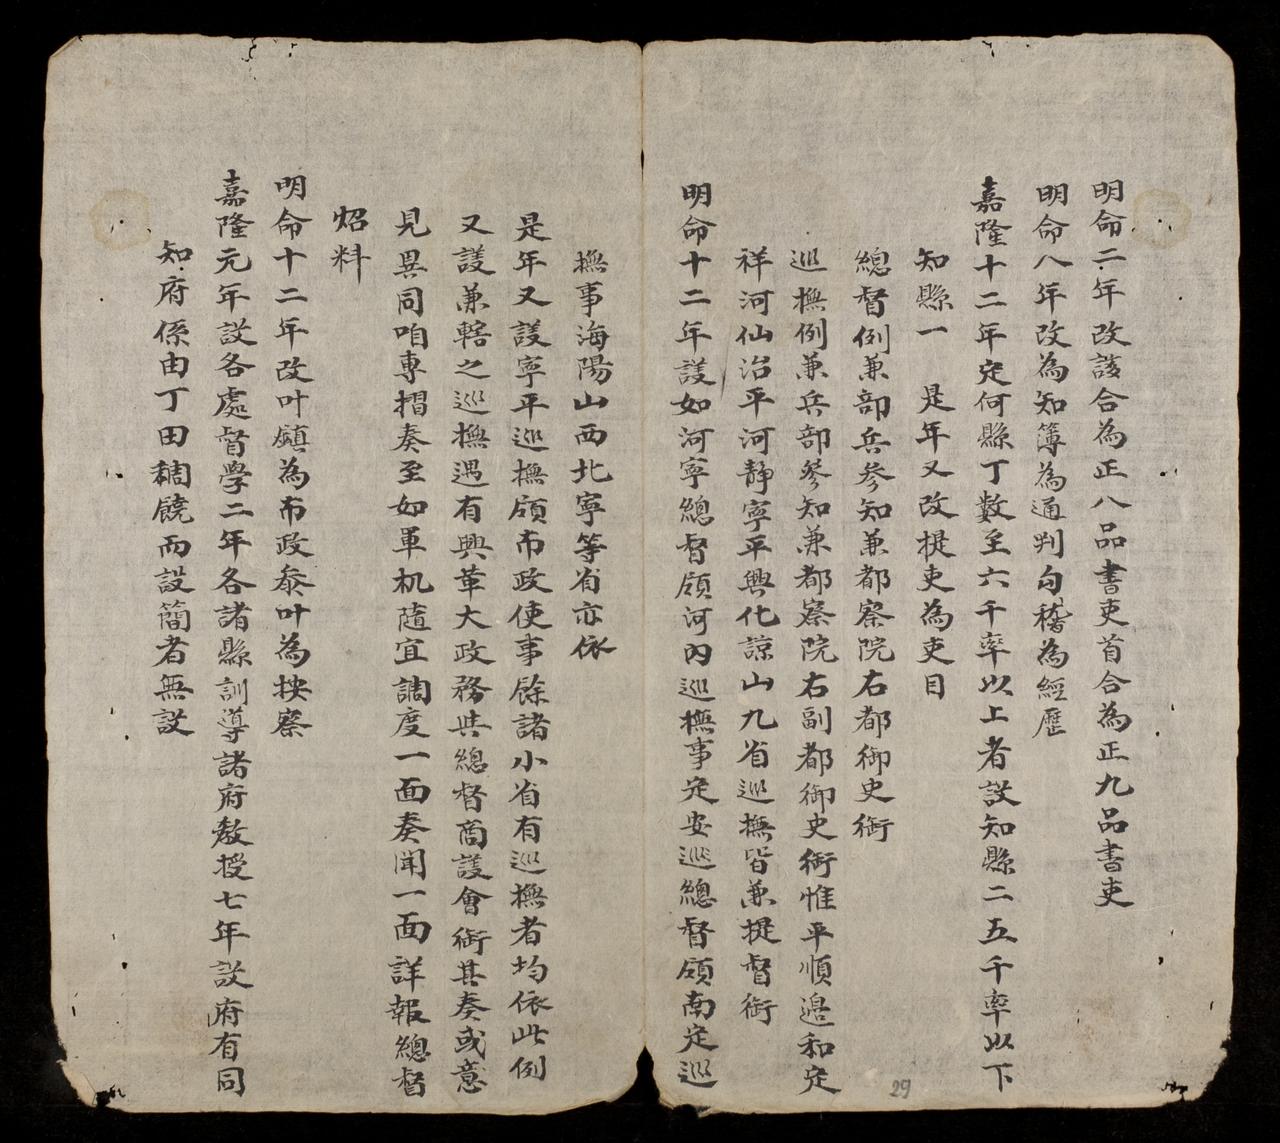 明命二年改該合為正八品書吏首合為正九品書吏
明命八年改為知簿為通判句稽為經歷
嘉隆十二年定何縣丁數至六千率以上者設知縣二五千率以下
知縣一 是年又改提吏為吏目
總督例兼部兵參知兼都察院右都御史銜
巡撫例兼兵部參知兼都察院右副都御史銜惟平順邊和定
祥河仙治平河靜寧平興化諒山九省巡撫皆兼提督銜
明命十二年議如河寧總督領河內巡撫事定安巡總督領南定巡
撫事海陽山西北寧等省亦依
是年又議寧平巡撫領布政使事餘諸小省有巡撫者均依此例
又議兼轄之巡撫遇有興革大政務與總督商議會銜其奏或意
見異同咱專摺奏至如軍机隨宜調度一面奏聞一面詳報總督
炤料
明命十二年改叶鎮為布政參叶為按察
嘉隆元年設各處督學二年各諸縣訓導諸府教授七年設府有同
知府係由丁田稠饒而設簡者無設
29